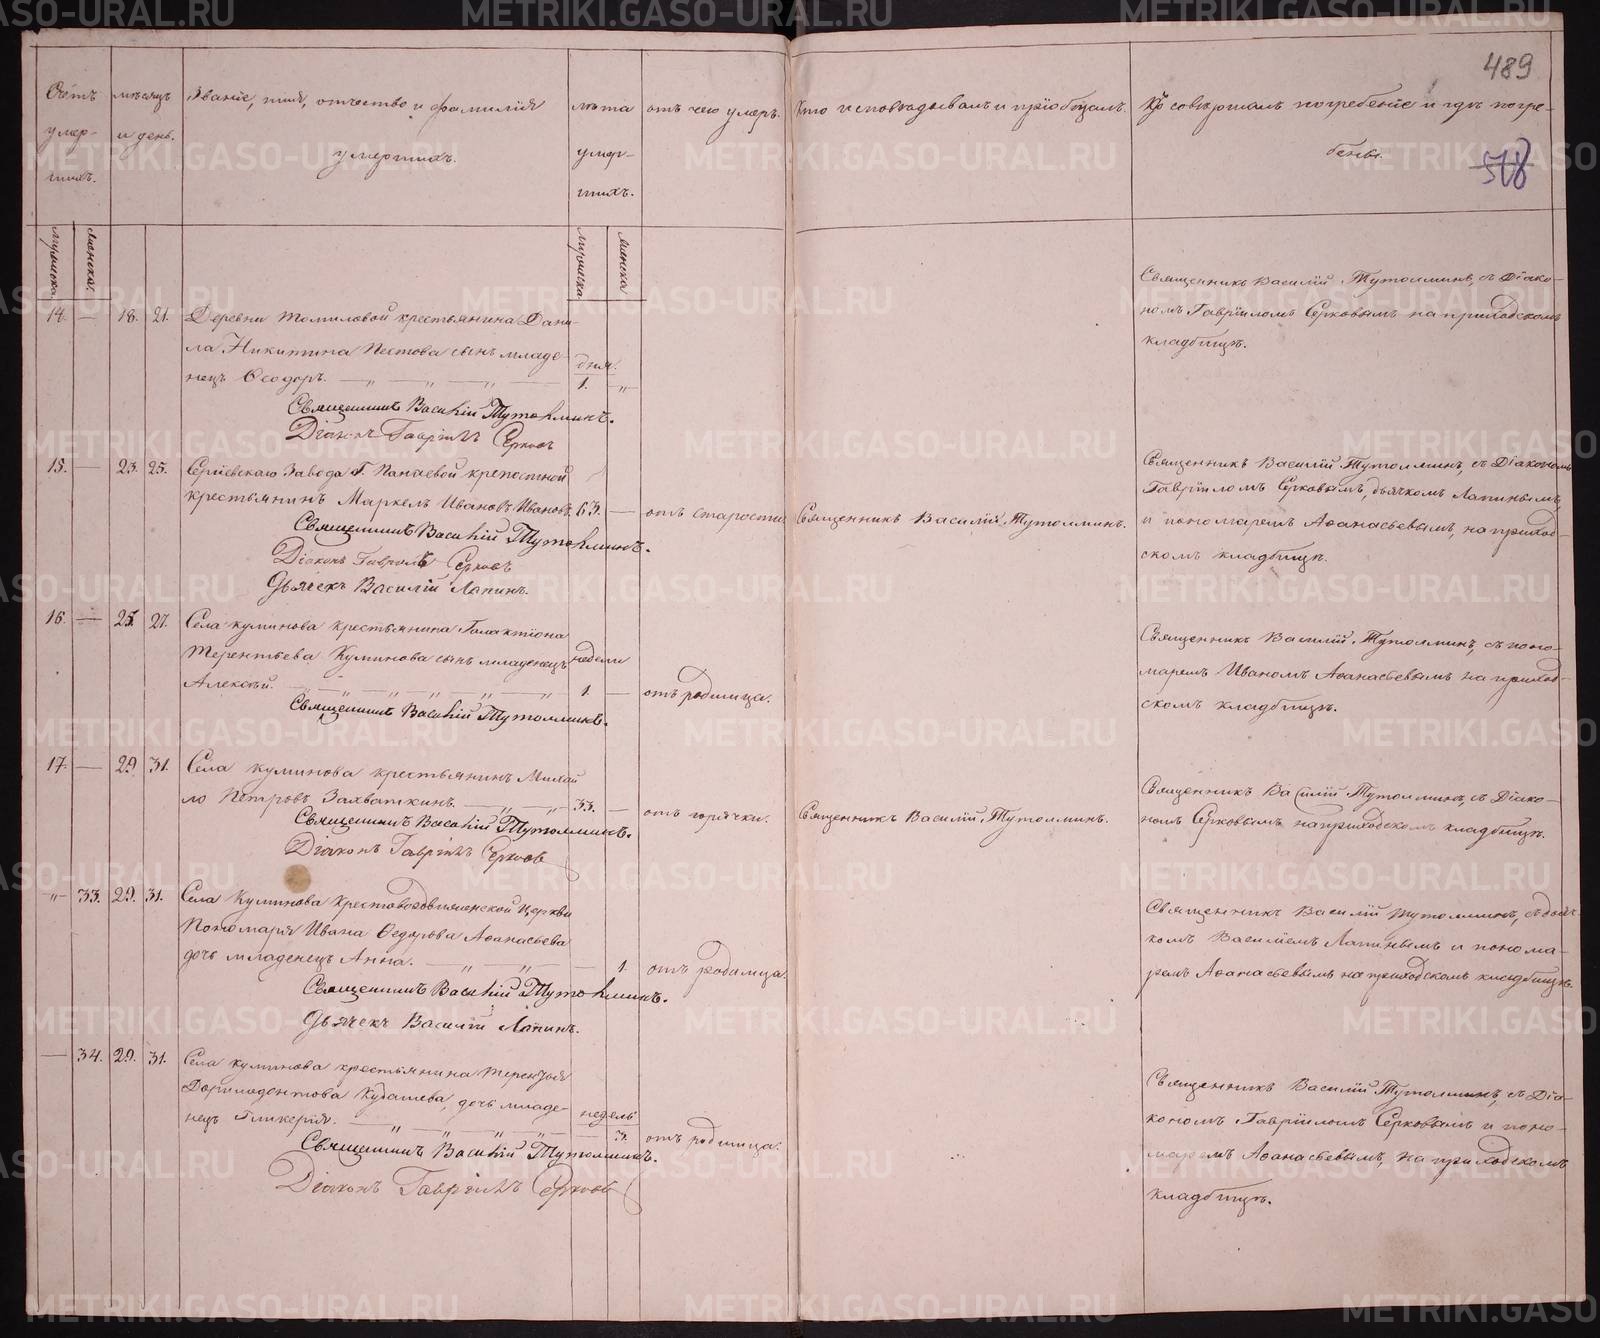 489
518
Счетъ умер-шихъ.
мѣсяцъ и день.
Званіе, имя, отчество и фамилія умершихъ.
лѣта умер-шихъ.
отъ чего умеръ.
Кто исповѣдывалъ и пріобщалъ.
Кто совершалъ погребеніе и гдѣ погре-бены.
мужеска
женска.
мужеска
женска
14. — 18. 21.
Деревни Томиловой крестьянина Дани-
ла Никитина Пестова сынъ младе-
нецъ Ѳеодоръ.
дня.
1.
Священникъ Василій Тутолминъ, съ Діако-
номъ Гавріиломъ Серковымъ на приходскомъ
кладбищѣ.
Священникъ Василій Тутолминъ.
Діаконъ Гавріилъ Серковъ
15. — 23. 25.
Сергіевскаго Завода Г. Панаевой крепостной
крестьянинъ Маркелъ Ивановъ Ивановъ. 63. —
отъ старости
Священникъ Василій Тутолминъ.
Священникъ Василій Тутолминъ, съ Діакономъ
Гавріиломъ Серковымъ, дьячкомъ Лапинымъ,
и пономаремъ Аѳанасьевымъ, на приход-
скомъ кладбищѣ.
Священникъ Василій Тутолминъ.
Діаконъ Гавріилъ Серковъ
Дьячекъ Василій Лапинъ.
16. — 25. 27.
Села Куминова крестьянина Галактіона
Терентьева Куминова сынъ младенецъ
Алексѣй.
недели
1. —
отъ родимца.
Священникъ Василій Тутолминъ, съ поно-
маремъ Иваномъ Аѳанасьевымъ на приход-
скомъ кладбищѣ.
Священникъ Василій Тутолминъ.
17. — 29. 31.
Села Куминова крестьянинъ Михай-
ло Петровъ Захваткинъ. 33. —
отъ горячки.
Священникъ Василій Тутолминъ.
Священникъ Василій Тутолминъ, съ Діако-
номъ Серковымъ на приходскомъ кладбищѣ.
Священникъ Василій Тутолминъ.
Діаконъ Гавріилъ Серковъ
" 33. 29. 31.
Села Куминова Крестовоздвиженской Церкви
Пономаря Ивана Ѳедорова Аѳанасьева
дочь младенецъ Анна.
1.
отъ родимца.
Священникъ Василій Тутолминъ, съ дьяч-
комъ Василіемъ Лапинымъ и понома-
ремъ Аѳанасьевымъ на приходскомъ кладбищѣ.
Священникъ Василій Тутолминъ.
Дьячекъ Василій Лапинъ.
— 34. 29. 31.
Села Куминова крестьянина Терентья
Доримедонтова Кубашева, дочь младе-
нецъ Гликерія.
недель
3.
отъ родимца.
Священникъ Василій Тутолминъ, съ Діа-
кономъ Гавріиломъ Серковымъ и поно-
маремъ Аѳанасьевымъ, на приходскомъ
кладбищѣ.
Священникъ Василій Тутолминъ.
Діаконъ Гавріилъ Серковъ
METRIKI.GASO-URAL.RU